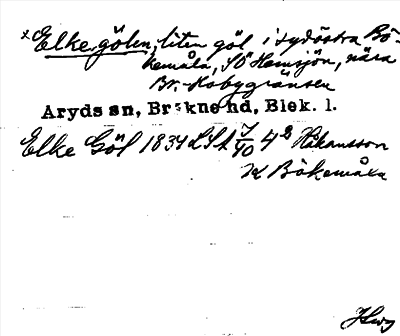 ×Elkegölen, liten göl i sydöstra Bö-
kemåla, SÖ Hemsjön, nära
Br.-Hobygränsen
Aryds sn, Bräkne hd, Blek. l.
Elke Göl 1834 LSA 7/40 4² Håkansson
K Bökemåla